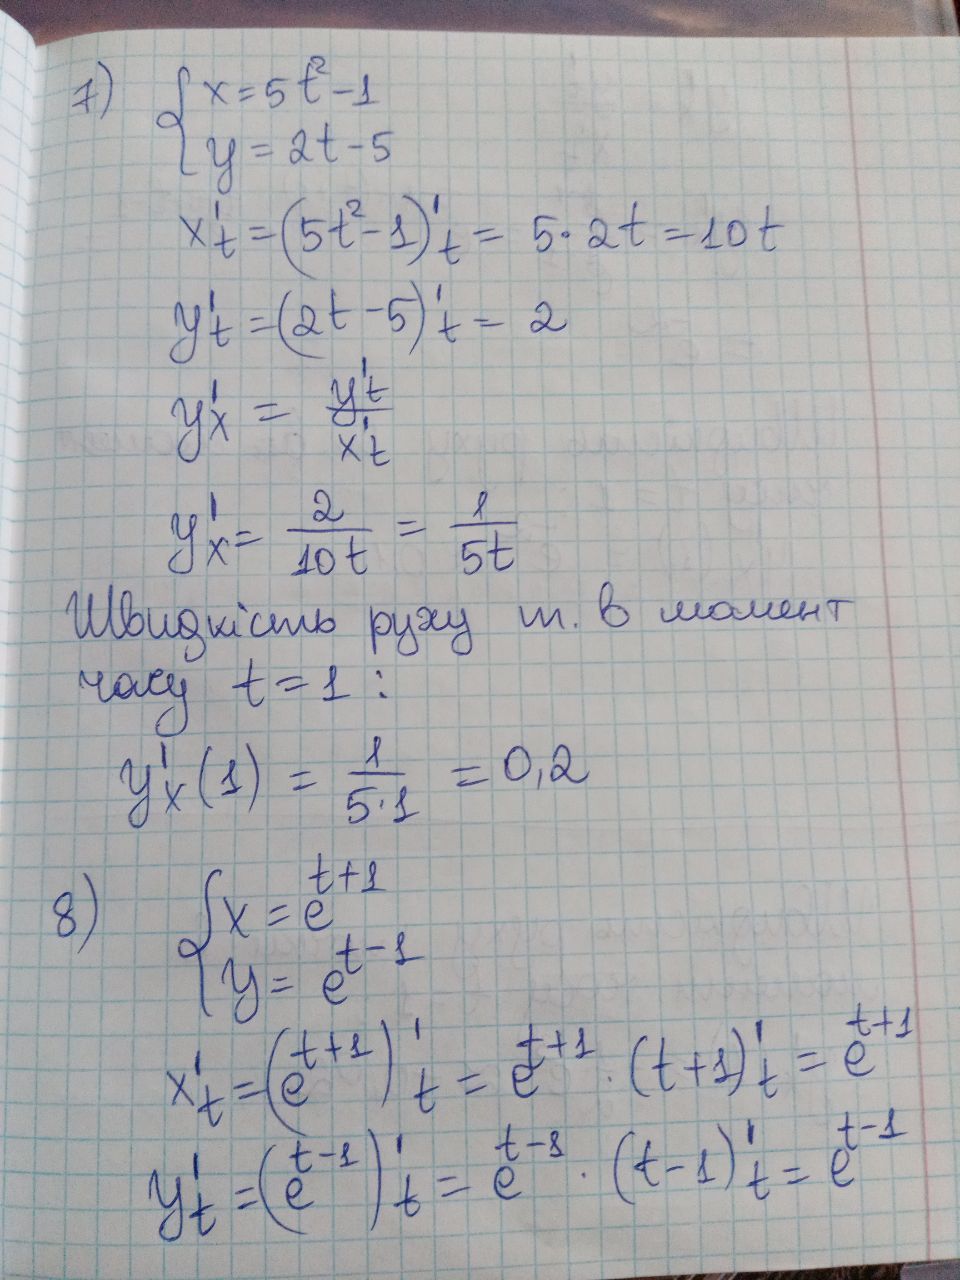 7) { x = 5t² - 1
y = 2t - 5
x't = (5t² - 1)'t = 5 · 2t = 10t
y't = (2t - 5)'t = 2
y'x = y't / x't
y'x = 2 / 10t = 1 / 5t
Швидкість руху т. в момент
часу t = 1 :
y'x (1) = 1 / 5·1 = 0,2
8) { x = e^(t+1)
y = e^(t-1)
x't = (e^(t+1))'t = e^(t+1) · (t+1)'t = e^(t+1)
y't = (e^(t-1))'t = e^(t-1) · (t-1)'t = e^(t-1)